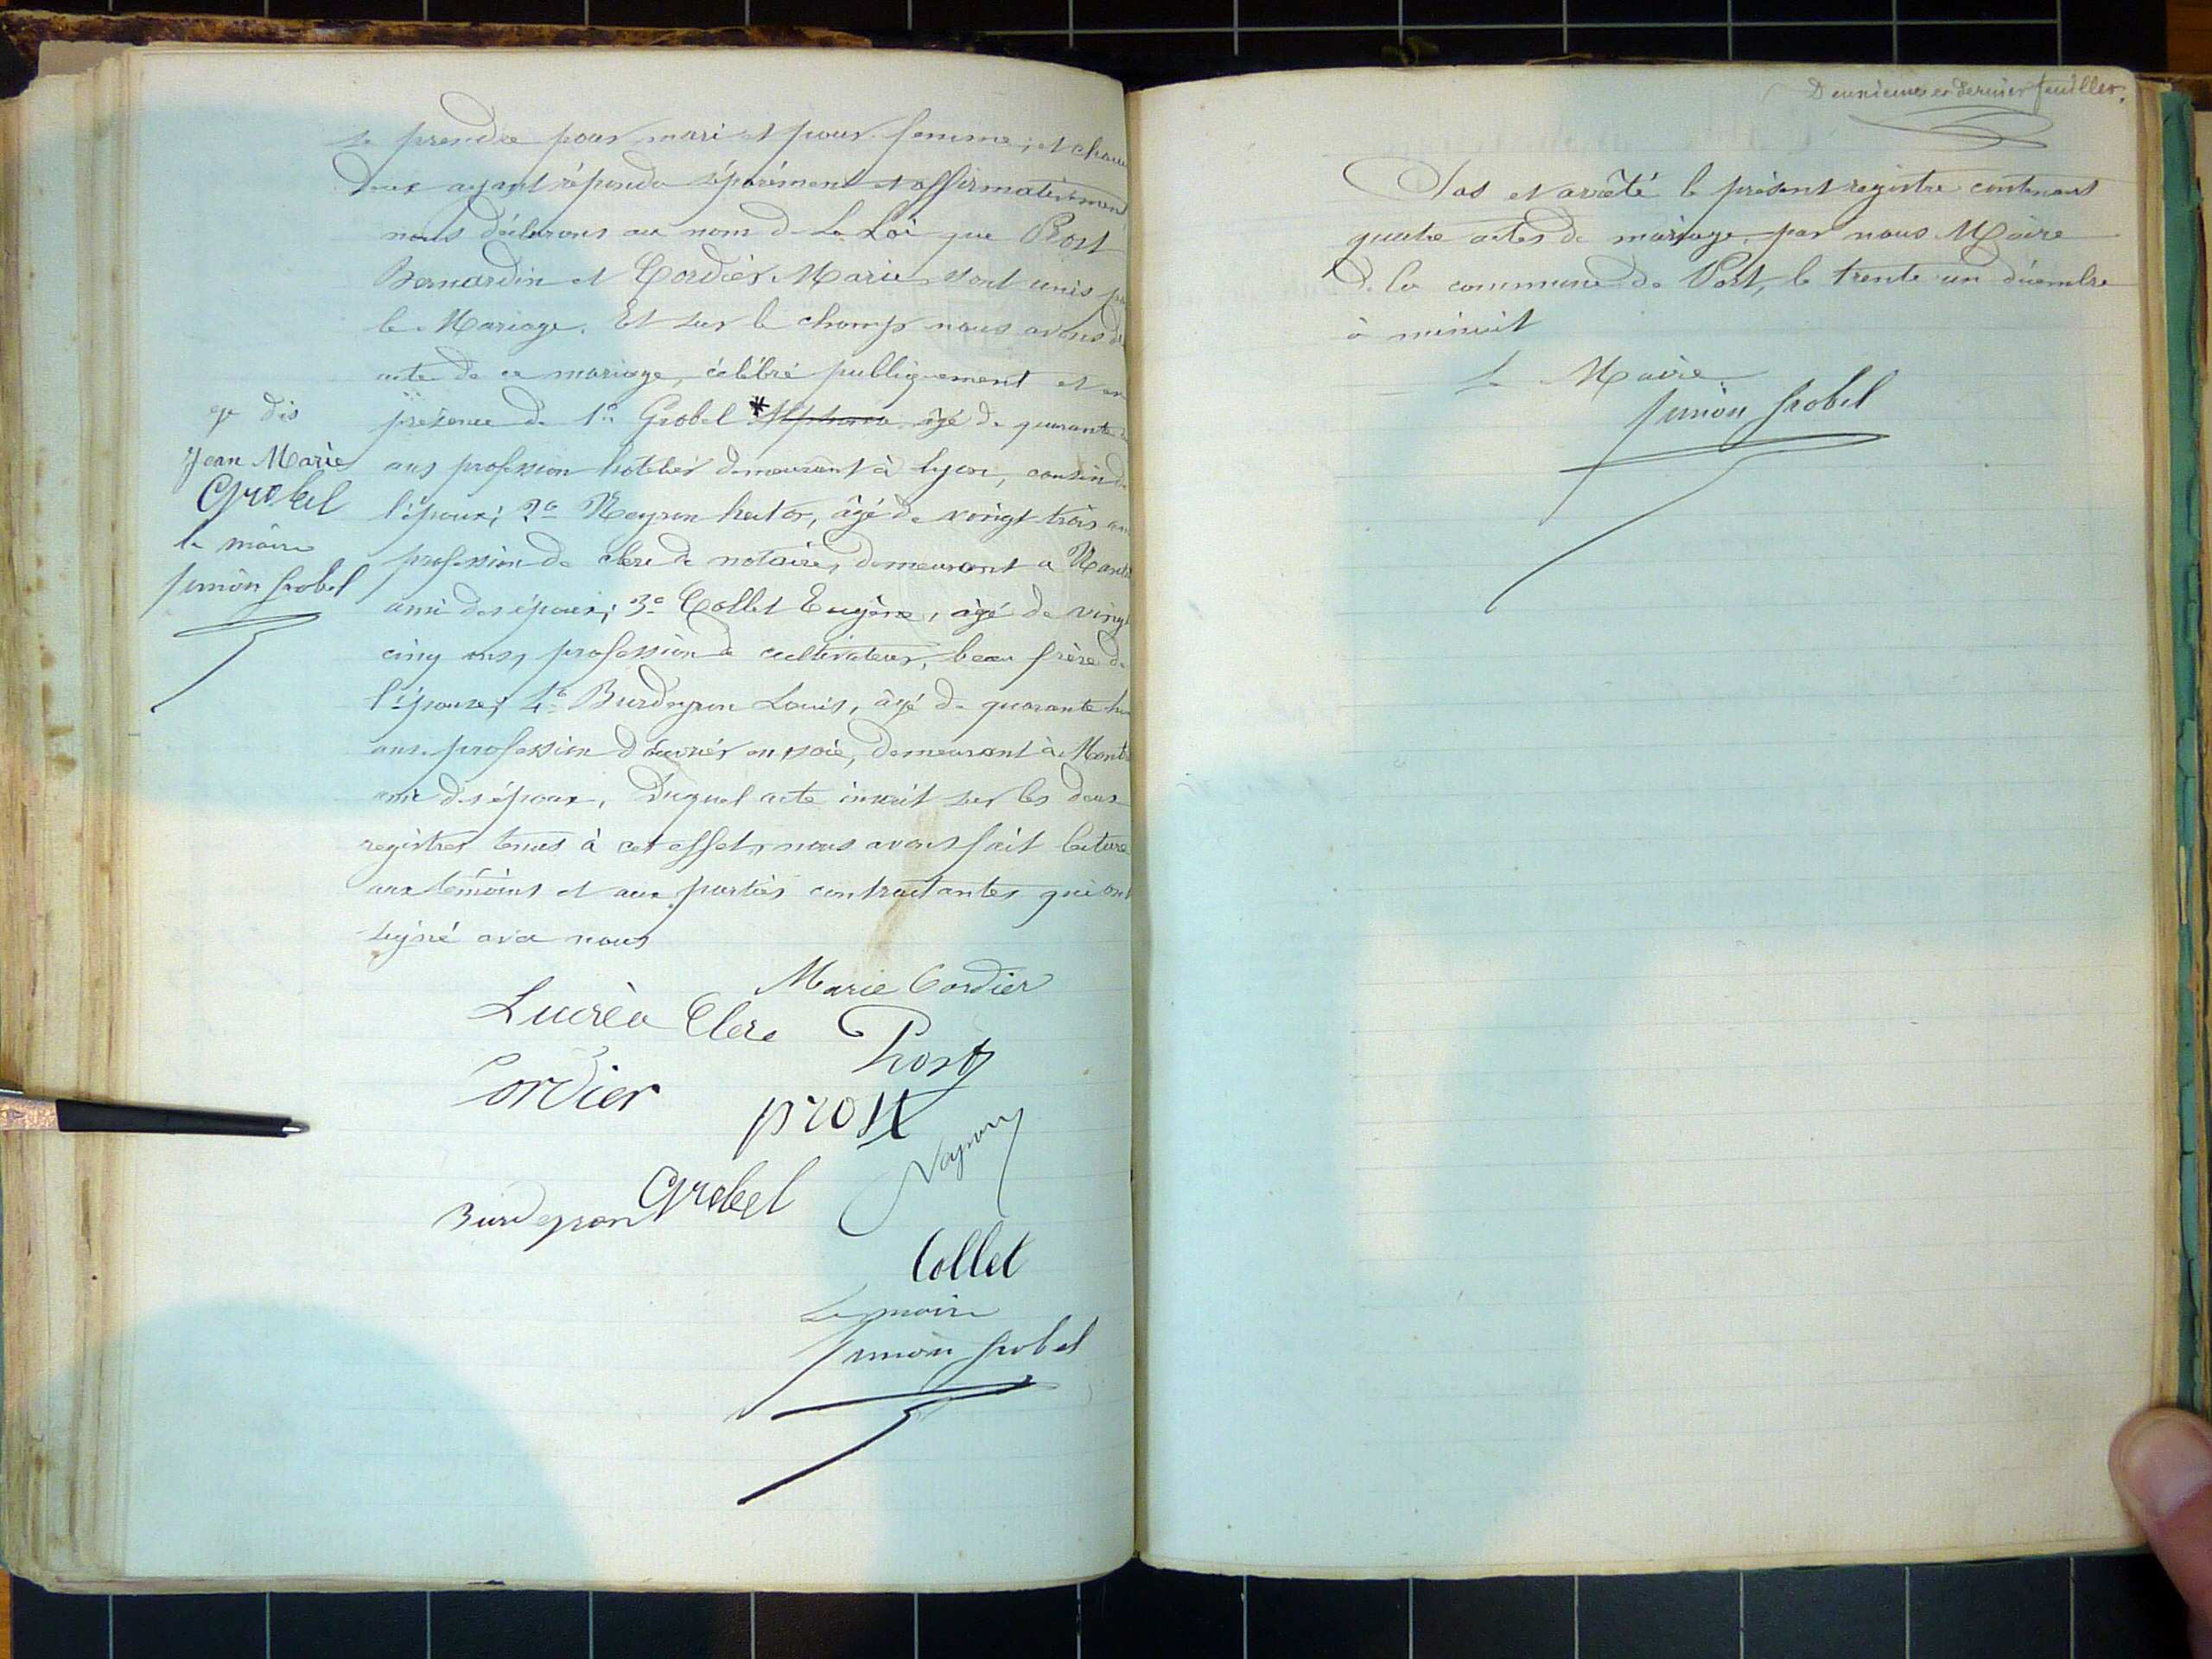 se prendre pour mari et pour femme; et chacun
d'eux ayant répondu séparément et affirmativement
nous déclarons au nom de la Loi que Prost
Bernardin et Cordier Marie sont unis par
le Mariage. Et sur le champ nous avons
acte de ce mariage, célébré publiquement et en
présence de 1º Grobel * Alphonse âgé de quarante
ans profession hotelier demeurant à Lyon, cousin de
l'époux; 2º Neyron hector, âgé de vingt trois ans
profession de clerc de notaire, demeurant a
ami des époux; 3º Collet Eugène, âgé de vingt
cinq ans, profession de cultivateur, beau frère de
l'épouse; 4º Burdeyron Louis, âgé de quarante
ans profession d'ouvrier en soie, demeurant à
ami des époux. Duquel acte inscrit sur les deux
registres tenus à cet effet, nous avons fait lecture
aux témoins et aux parties contractantes qui ont
signé avec nous
* dis
Jean Marie
Grobel
le maire
Simon Grobel
Marie Cordier
Clerc
Prost
Cordier
prost
Neyron
Burdeyron
Grobel
Collet
Le maire
Simon Grobel
Deuxième et dernier feuillet.
Clos et arrêté le présent registre contenant
quatre actes de mariage, par nous Maire
de la commune de Port, le trente un décembre
à minuit
Le Maire
Simon Grobel